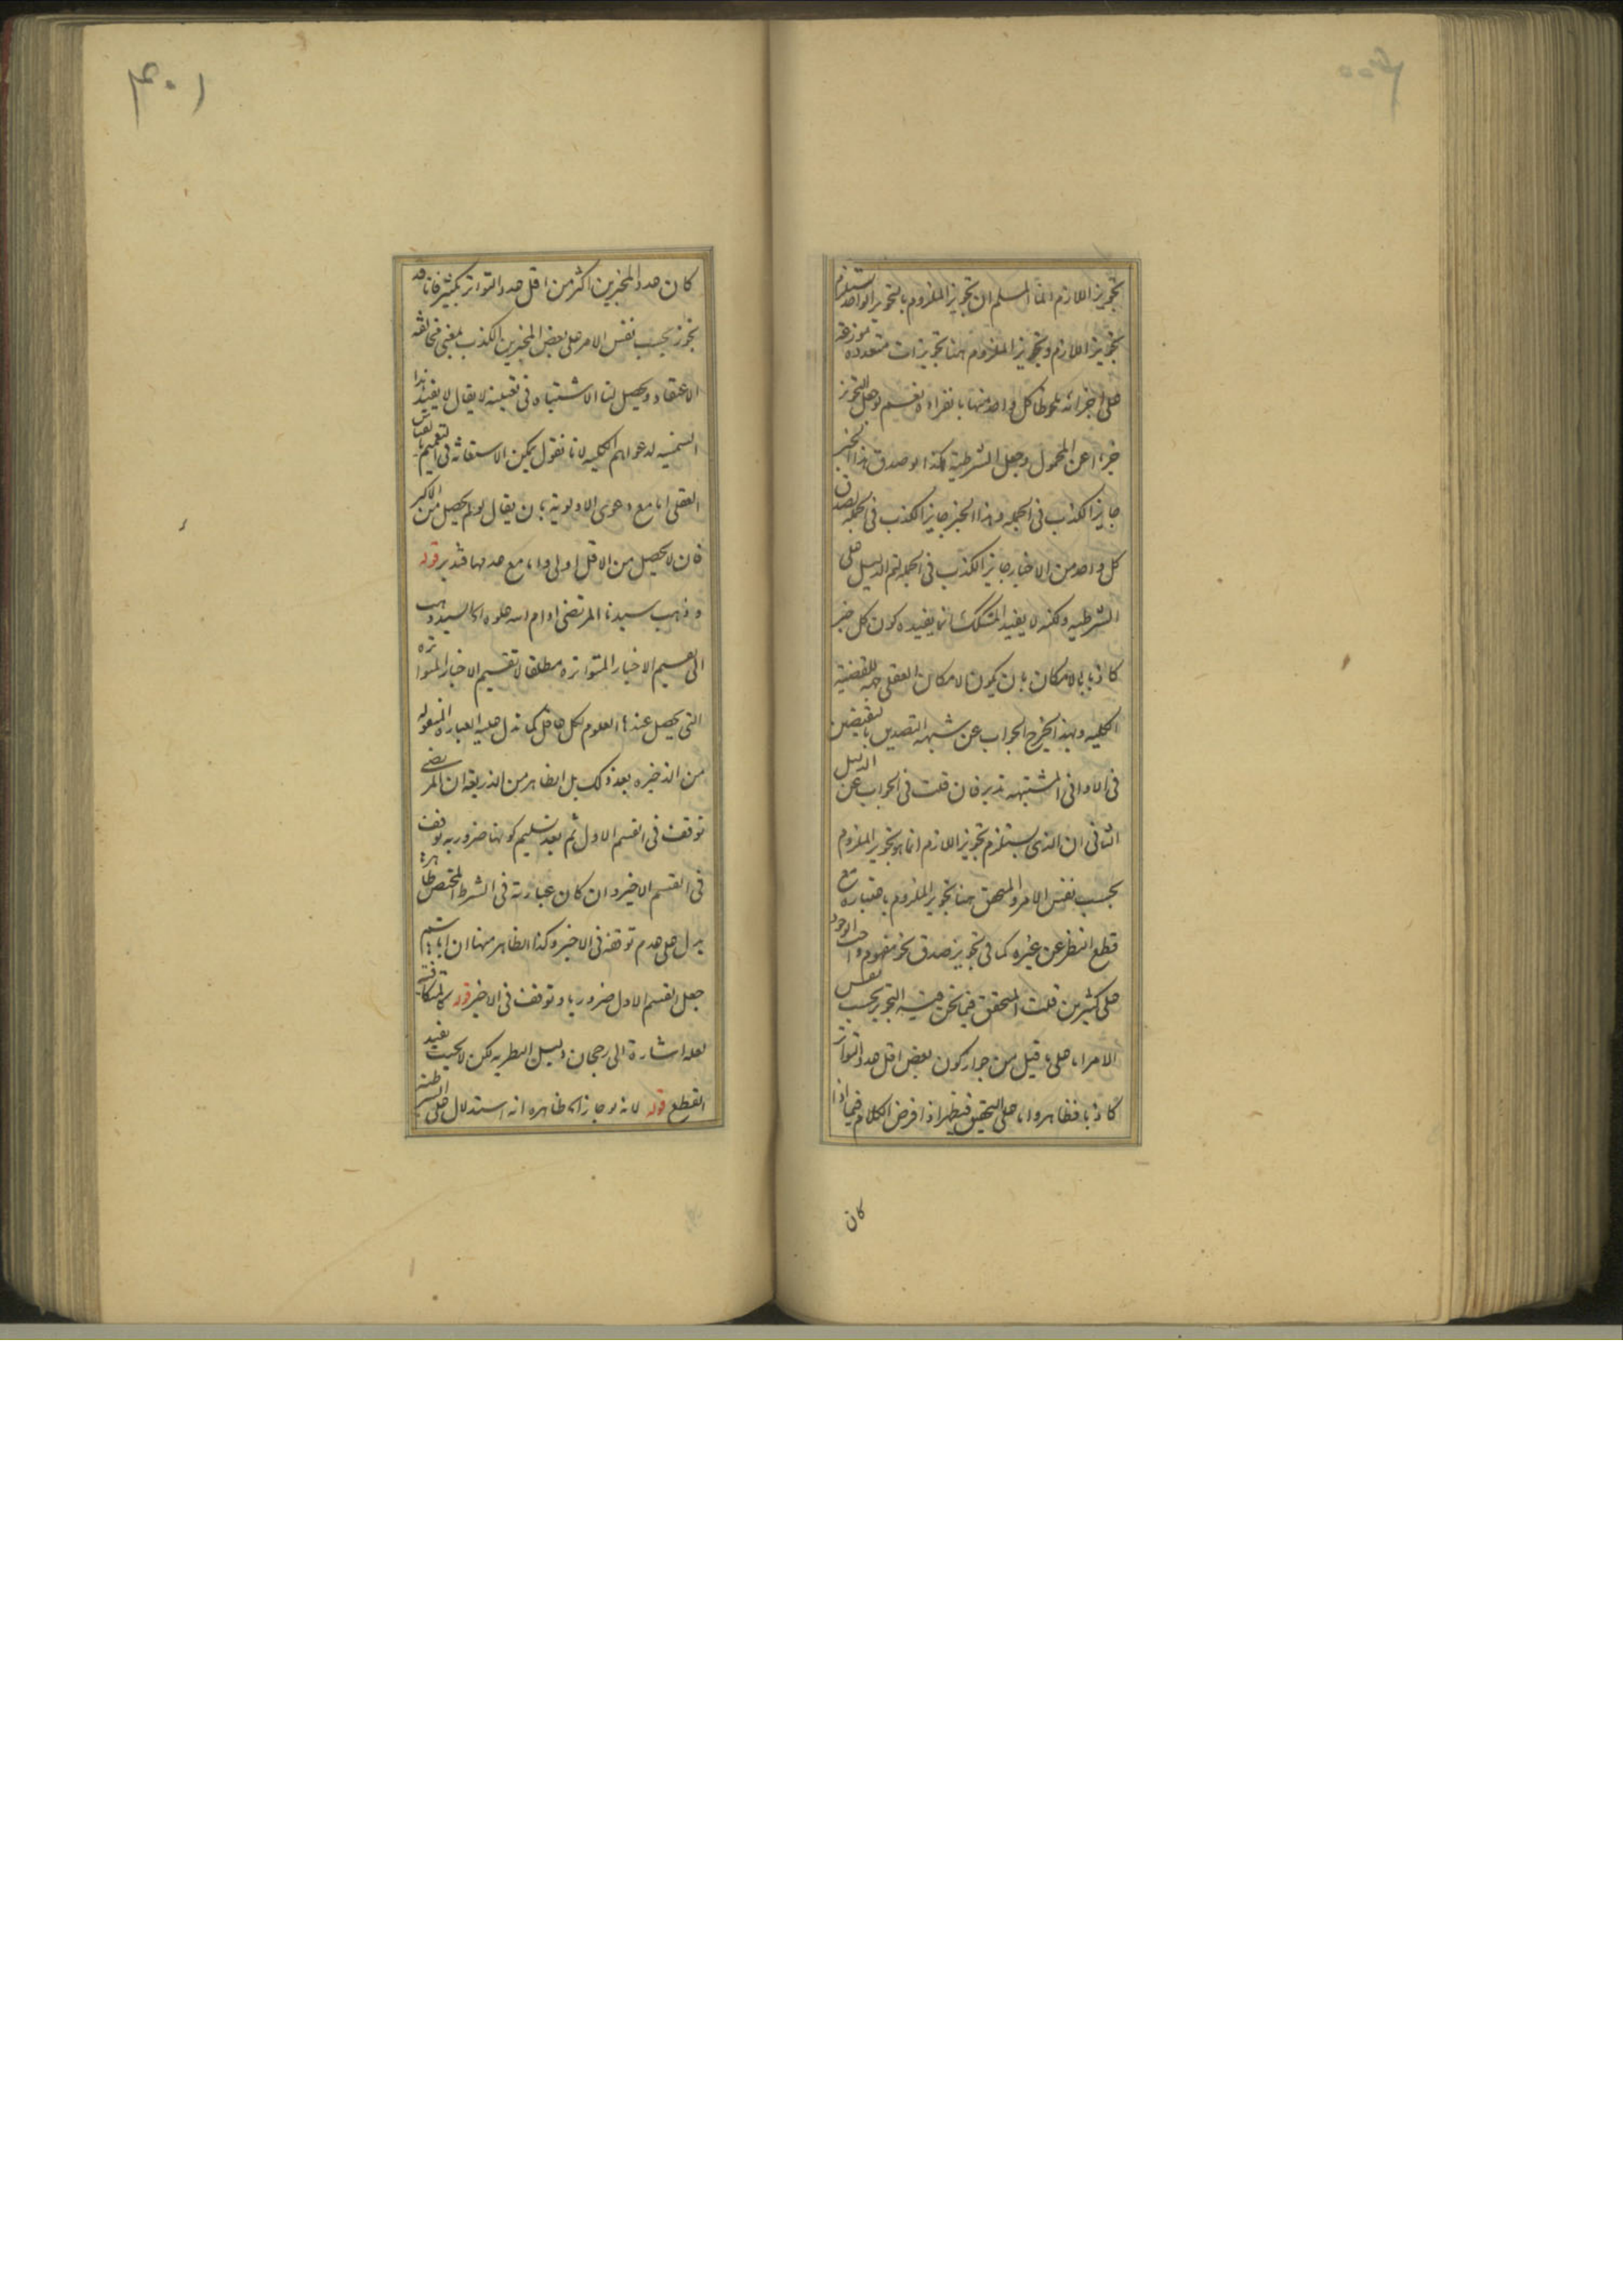 تجويز اللازم انما المسلم ان تجويز الملزوم بالتجويز الواحد يستلزم
تجويز اللازم وتجويز الملزوم هنا تجويزات متعدده موزعة
على اجزائه بملاحظة كل واحد منها بانفراده نعم لو جعل التجويز
جزءا عن المحمول وجعل الشرطية هكذا لو صدق هذا الخبر
جايز الكذب فى الجملة وهذا الخبر جايز الكذب فى الجملة لصدق
كل واحد من الاخبار جايز الكذب فى الجملة لتم الدليل على
الشرطيه ولكنه لا يفيد المشكك انما يفيده كون كل خبر
كاذبا بالامكان بان يكون الامكان العقلى جهة للقضية
الكلية وبهذا يخرج الجواب عن شبهة التصديق بالنقيضين
فى الاوانى المشتبهه تدبر فان قلت فى الجواب عن الدليل
الثانى ان الذى يستلزم تجويز اللازم انما هو تجويز الملزوم
بحسب نفس الامر والمتحقق هنا تجويز الملزوم باعتباره مع
قطع النظر عن غيره كما فى تجويز صدق نحو مفهوم واجب الوجود
على كثيرين قلت المتحقق فيما نحن فيه التجويز بحسب نفس
الامر اما على ما قيل من جواز كون بعض اقل عدد التواتر
كاذبا فظاهر واما على التحقيق فيظهر اذا فرض الكلام فيما اذا
كان
٤٠١
كان عدد المخبرين اكثر من اقل عدد التواتر بكثير فانا قد
نجوز بحسب نفس الامر على بعض المخبرين الكذب بمعنى مخالفة
الاعتقاد ويحصل لنا الاشتباه فى تعيينه لا يقال لا يفيد هذا
السمنيه لدعواهم الكلية لانا نقول يمكن الاستعانة فى التعميم بالقياس
العقلى اما مع دعوى الاولوية بان يقال لو لم يحصل من الاكثر
فان لا يحصل من الاقل اولى واما مع عدمها فتدبر قوله
وذهب سيدنا المرتضى ادام الله علوه اه السيد ذهب
الى تعميم الاخبار المتواتره مطلقا لا تقسيم الاخبار المتواترة
التى يحصل عندها العلوم لكل عاقل كما تدل عليه العبارة المنقوله
من الذخيره بعد ذلك بل الظاهر من الذريعة ان المرتضى
توقف فى القسم الاول ثم بعد تسليم كونها ضروريه توقف
فى القسم الاخير وان كان عبارته فى الشرط المختص ظاهرها
يدل على عدم توقفه فى الاخير وكذا الظاهر منها ان ابا هاشم
جعل القسم الاول ضروريا وتوقف فى الاخير قوله كالمتكافئة
لعله اشارة الى رجحان دليل النظريه لكن لا بحيث يفيد
القطع قوله لانه لو جاز اه ظاهره انه استدلال على الشرطية